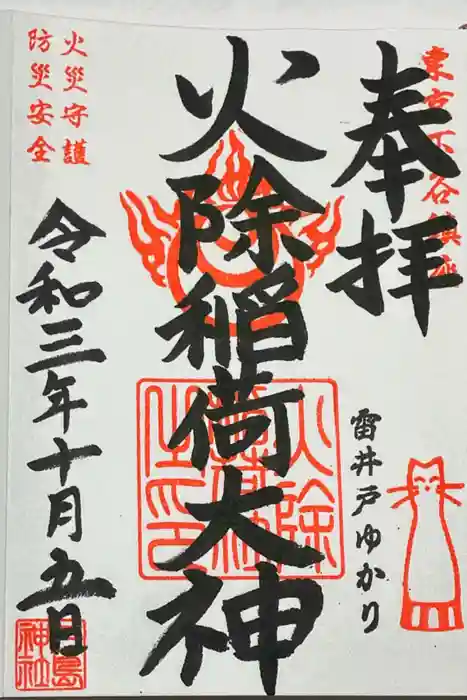 東京下谷鎮座
奉拝
雷井戸ゆかり
火除稲荷大神
火災守護
防災安全
令和三年十月五日
三島神社